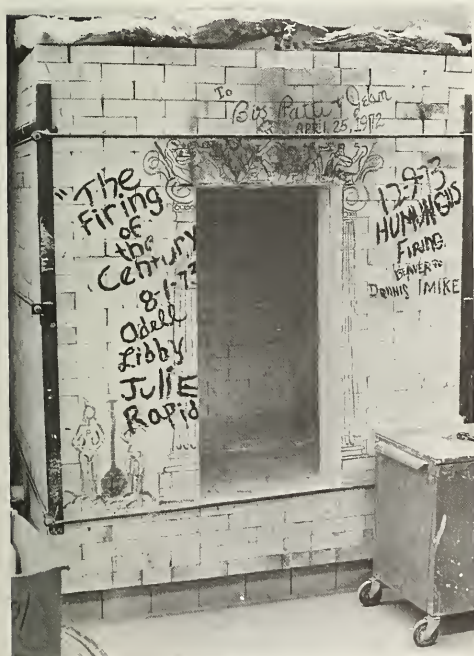 To
Bis Patti & Jean
APRIL 25, 1972
"The
Firing
of
the
Century
8-1-73
Odell
Libby
JuliE
Rapid
12-9-73
HUMUNGUS
FIRING.
BEAVER TO
DENNIS MIKE